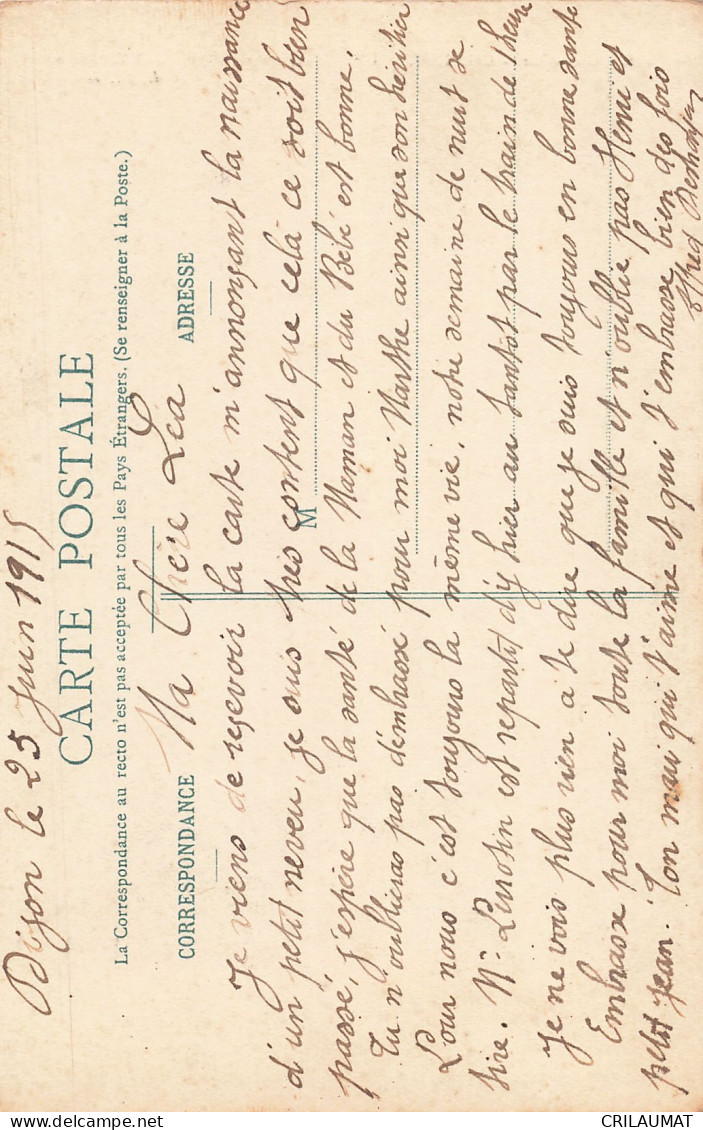 Dijon le 25 Juin 1915
CARTE POSTALE
La Correspondance au recto n'est pas acceptée par tous les Pays Étrangers. (Se renseigner à la Poste.)
CORRESPONDANCE
ADRESSE
M
Ma Chère Léa
Je viens de reçevoir la carte m'annonçant la naissance
d'un petit neveu, je suis très content que celà ce soit bien
passé, j'espère que la santé de la Maman et du Bébé est bonne.
Tu n'oublieras pas d'embrassé pour moi Marthe ainsi que son héritier
Pour nous c'est toujours la même vie, notre semaine de nuit se
tire. Mr est repartit d'ij hier au tantot par le train de 1 heure
Je ne vois plus rien a te dire que je suis toujours en bonne santé
Embrasse pour moi toute la famille et n'oublie pas Henri et
petit Jean. Ton mari qui t'aime et qui t'embrasse bien des fois
Alfred
CRILAUMAT